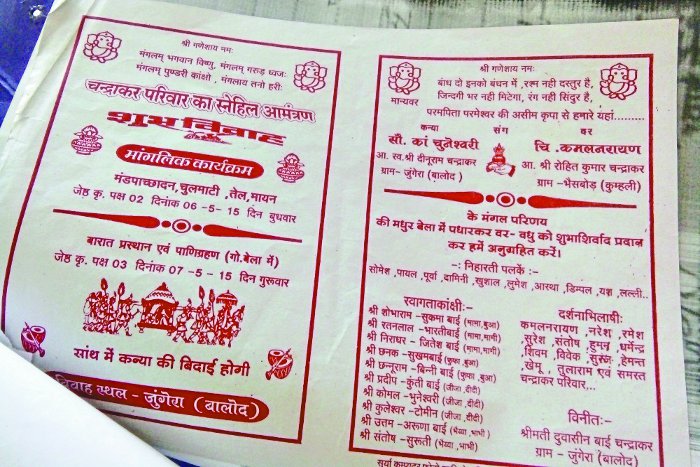 श्री गणेशाय नमः
मंगलम् भगवान विष्णु, मंगलम् गरुड़ ध्वजः
मंगलम् पुण्डरी कांक्षो , मंगलाय तनो हरीः
चन्द्राकर परिवार का स्नेहिल आमंत्रण
शुभ विवाह
मांगलिक कार्यक्रम
मंडपाच्छादन, चुलमाटी , तेल, मायन
जेष्ठ कृ. पक्ष 02 दिनांक 06 -5 - 15 दिन बुधवार
बारात प्रस्थान एवं पाणिग्रहण (गो.बेला में)
जेष्ठ कृ. पक्ष 03 दिनांक 07 -5 - 15 दिन गुरूवार
सांथ में कन्या की बिदाई होगी
विवाह स्थल - जुंगेरा (बालोद)
श्री गणेशाय नमः
बांध दो इनको बंधन में , रश्म नही दस्तुर है,
जिन्दगी भर नही मिटेगा, रंग नही सिंदुर है,
मान्यवर
परमपिता परमेश्वर की असीम कृपा से हमारे यहां..........
कन्या संग वर
सौ. कां चुनेश्वरी चि .कमलनारायण
आ. स्व.श्री दीनूराम चन्द्राकर आ. श्री रोहित कुमार चन्द्राकर
ग्राम- जुंगेरा (बालोद) ग्राम -भैसबोड़ (कुम्हली)
के मंगल परिणय
की मधुर बेला में पधारकर वर- वधु को शुभाशिर्वाद प्रदान
कर हमें अनुग्रहित करें।
-: निहारती पलकें :-
सोमेश , पायल , पूर्वा , दामिनी , खुशाल , लुमेश , आस्था , डिम्पल , यश , लल्ली..
स्वागताकांक्षीः-
श्री शोभाराम -सुकमा बाई (मामा, बुआ)
श्री रतनलाल -भारतीबाई (मामा, मामी)
श्री निराधर - जितेश बाई (मामा, मामी)
श्री छनक - सुखमबाई (फुफा, बुआ)
श्री छन्नूराम -बिन्नी बाई (फुफा, बुआ)
श्री प्रदीप -कुंती बाई (जीजा, दीदी)
श्री कोमल -भुनेश्वरी (जीजा, दीदी)
श्री कुलेश्वर -टोमीन (जीजा, दीदी)
श्री उत्तम -अरूणा बाई (भैय्या , भाभी)
श्री संतोष -सुरूती (भैय्या , भाभी)
दर्शनाभिलाषीः
कमलनारायण , नरेश , रमेश
सुरेश , संतोष , हुमन , धर्मेन्द्र
शिवम , विवेक , सुरूज , हेमन्त
खेमू , तुलाराम एवं समस्त
चन्द्राकर परिवार...
विनीतः-
श्रीमती दुवासीन बाई चन्द्राकर
ग्राम - जुंगेरा (बालोद)